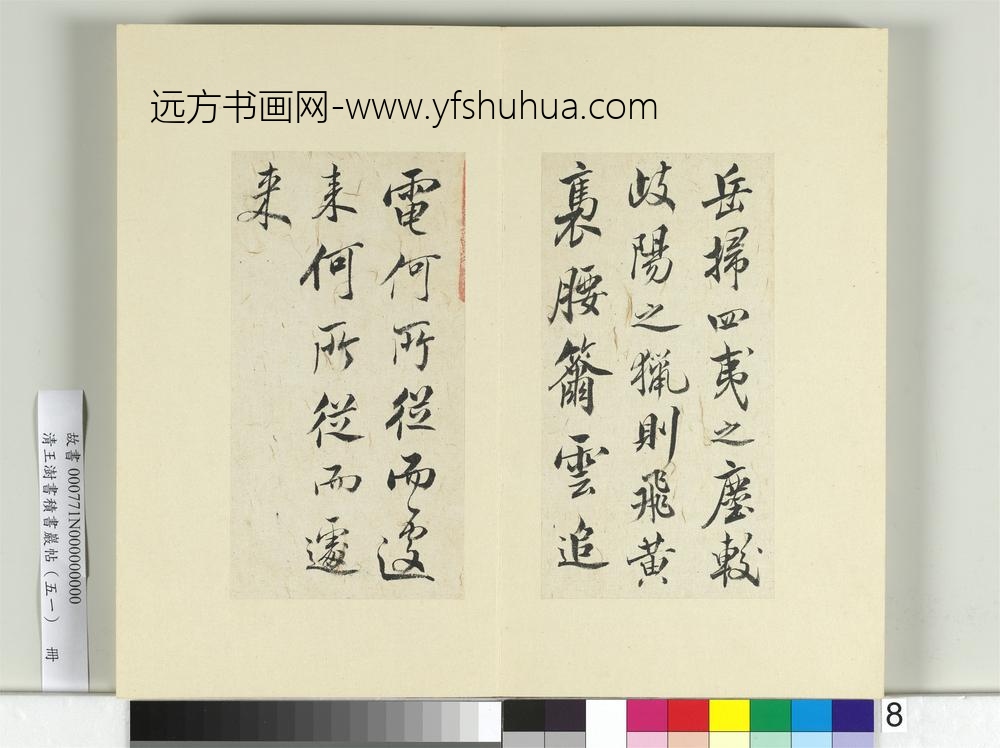 远方书画网-www.yfshuhua.com
岳掃四夷之塵較
岐陽之獵則飛黃
褭腰籋雲追
電何所從而遽
来何所從而遽
来
故書 000771N000000000
清王澍書積書巖帖(五一) 冊
8